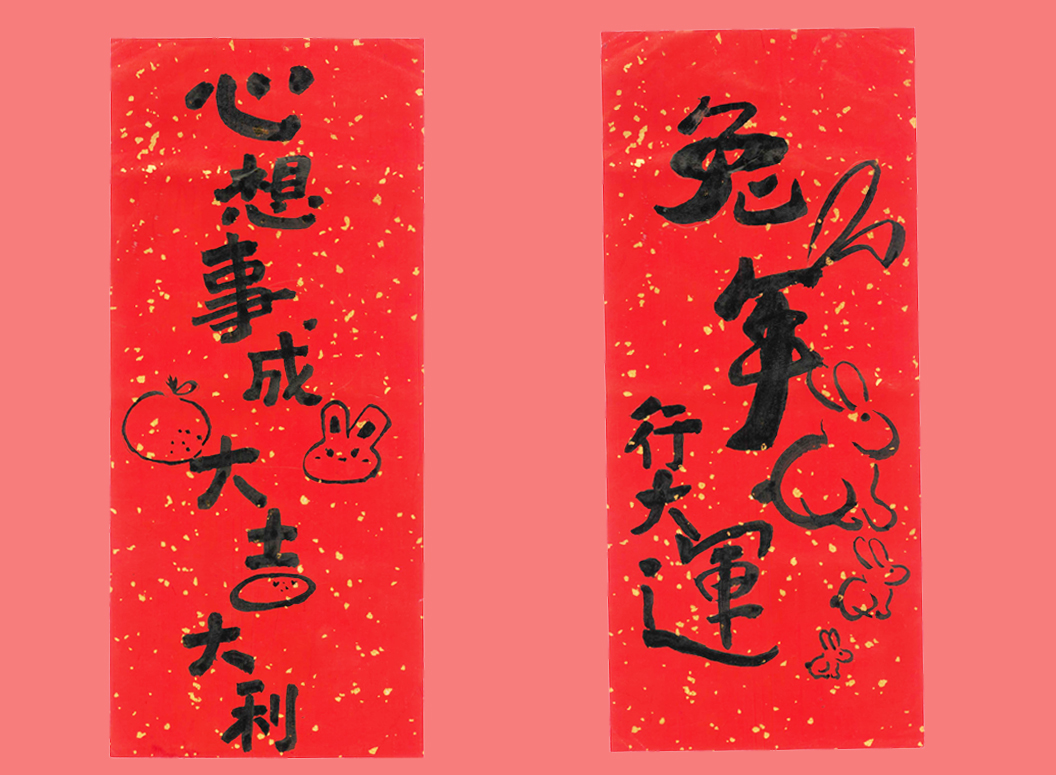 兔年
行大運
心想事成大吉大利